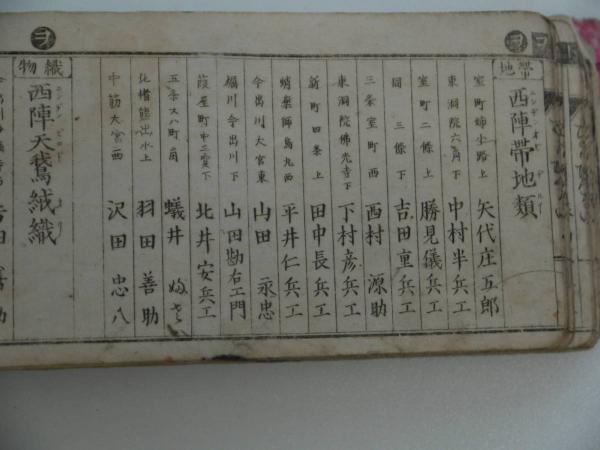 帯地
西陣帯地類
ニシヂンオビヂルイ
室町姉小路上 矢代庄五郎
東洞院六角下 中村半兵エ
室町二條上 勝見儀兵エ
同 三條下 吉田重兵エ
三条室町西 西村源助
東洞院佛光寺下 下村彦兵エ
新町四条上 田中長兵エ
蛸薬師烏丸西 平井仁兵エ
今出川大宮東 山田永忠
堀川今出川下 山田勘右エ門
葭屋町中立賣下 北井安兵エ
五条 町角 蟻井
椹出水上 羽田善助
中筋大宮西 沢田忠八
ヲ
織物
西陣天鵞絨織